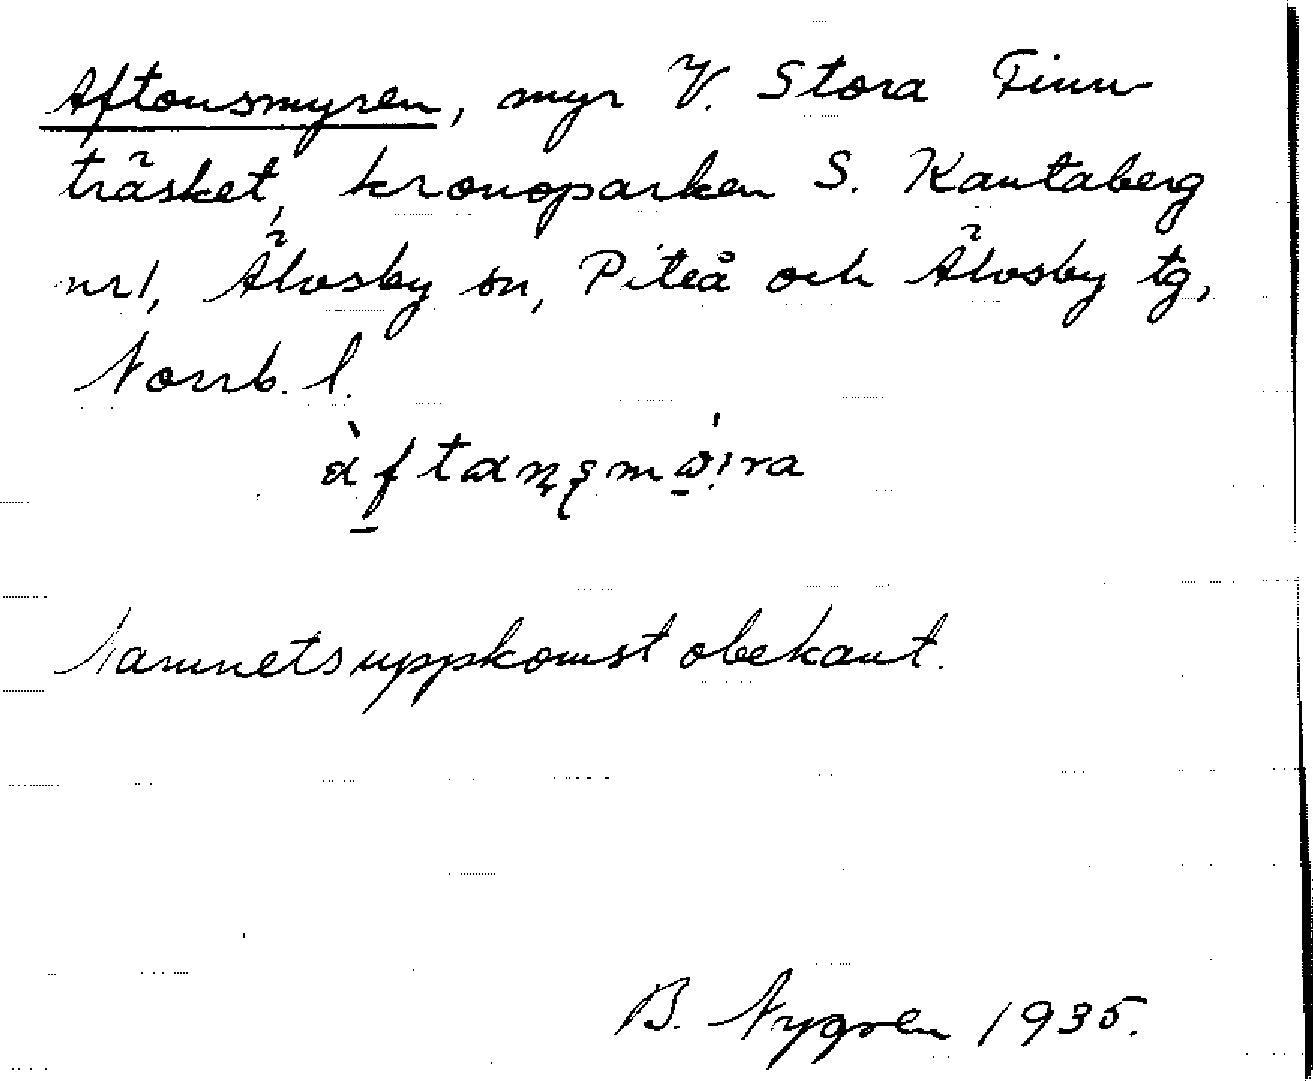 Aftonsmyren, myr V. Stora Finn
träsket, kronoparken S. Kantaberg
nr 1, Älvsby sn, Piteå och Älvsby tg,
Norrb. l.
àftansmö́ira
Namnets uppkomst obekant.
B. Nygren 1935.